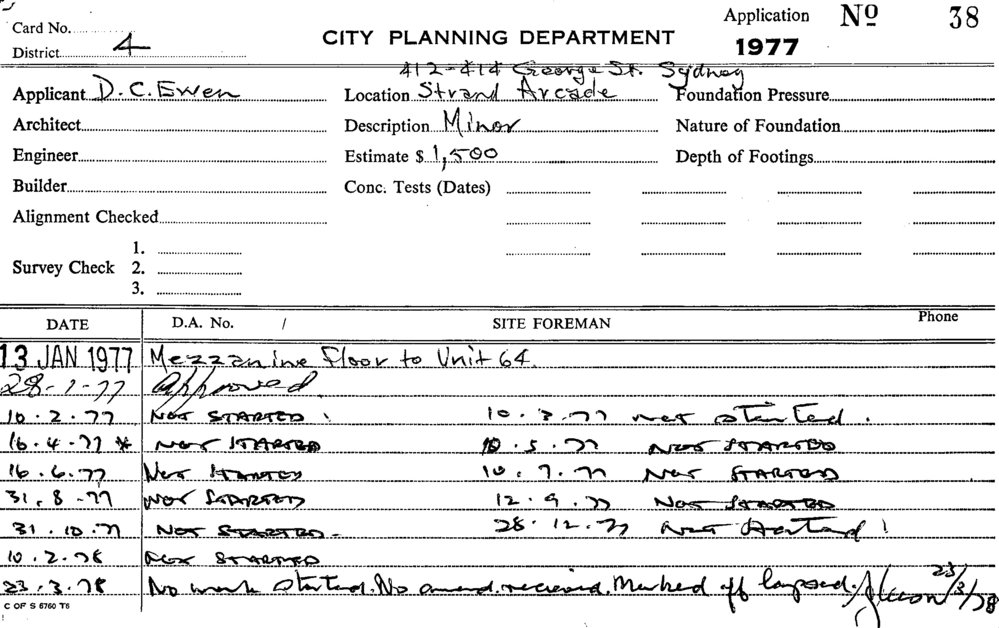 Card No. CITY PLANNING DEPARTMENT Application Nº 38
District 4 1977
412-414 George St. Sydney
Applicant D.C. Ewen Location Strand Arcade Foundation Pressure
Architect Description Minor Nature of Foundation
Engineer Estimate $ 1,500 Depth of Footings
Builder Conc. Tests (Dates)
Alignment Checked
1.
Survey Check 2.
3.
DATE D.A. No. / SITE FOREMAN Phone
13 JAN 1977 Mezzanine Floor to Unit 64.
28-1-77 Approved
10.2.77 NOT STARTED. 10.3.77 not started.
16.4.77 * NOT STARTED 10.5.77 NOT STARTED
16.6.77 NOT STARTED 10.7.77 NOT STARTED
31.8.77 NOT STARTED 12.9.77 NOT STARTED
31.10.77 NOT STARTED. 28.12.77 Not Started!
10.2.78 NOT STARTED
23.3.78 No work started. No amend. received. Marked off lapsed. 23/3/78
C OF S 6760 T6